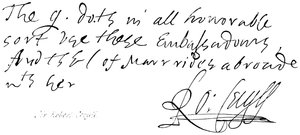 The q. doth in all honorable
sort use these Embassadours,
And the E of Marr rides abroade
wth her
Ro: Cecyll
Sir Robert Cecil